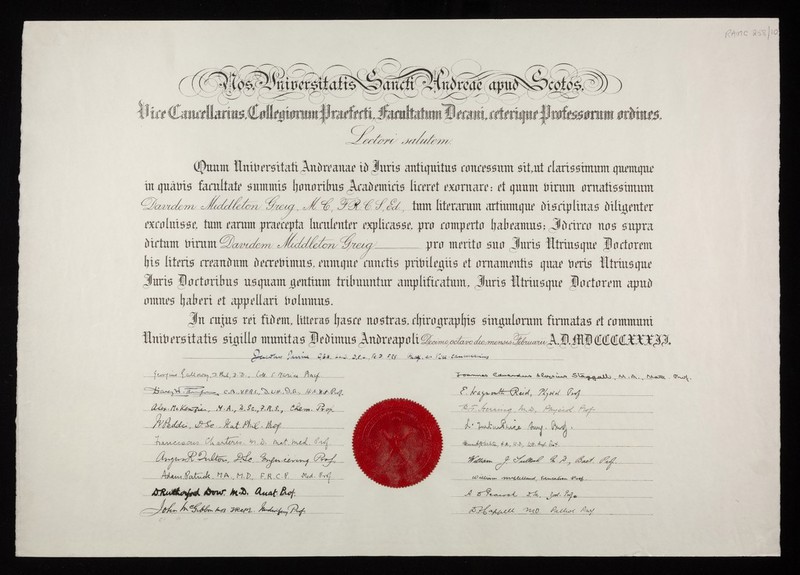 RAMC 855/10
Nos, Universitatis Sancti Andreae apud Scotos,
Vice Cancellarius, Collegiorum Praefecti, Facultatum Decani, ceterique Professorum ordines,
Lectori salutem
Quum Universitati Andreanae id Juris antiquitus concessum sit, ut clarissimum quemque
in quâvis facultate summis honoribus Academicis liceret exornare; et quum virum ornatissimum
Davidem Middleton Greig, M.C., F.R.C.S.Ed., tum literarum artiumque disciplinas diligenter
excoluisse, tum earum praecepta luculenter explicasse, pro comperto habeamus; Idcirco nos supra
dictum virum Davidem Middleton Greig pro merito suo Juris Utriusque Doctorem
his literis creandum decrevimus, eumque cunctis privilegiis et ornamentis quae veris Utriusque
Juris Doctoribus usquam gentium tribuuntur amplificatum, Juris Utriusque Doctorem apud
omnes haberi et appellari volumus.
In cujus rei fidem, litteras hasce nostras, chirographis singulorum firmatas et communi
Universitatis sigillo munitas Dedimus Andreapoli Decimo octavo die mensis Februarii A.D. MDCCCCXXXII.
Jacobus Irvine
Georgius Galloway, D.Phil., D.D.
Prof.
Alex. McKenzie, M.A., D.Sc., F.R.S., Chem. Prof.
E. Wyndham Reid, Physiol Prof
W Peddie, D.Sc. Nat. Phil. Prof
Franciscus Charteris M.D. Mat. Med. Prof
Angus R Fulton, D.Sc. Engineering Prof.
William J Tulloch M.D., Bact. Prof.
Adam Patrick, M.A., M.D., F.R.C.P. Med. Prof
William McClelland, Education Prof
D. Rutherford Dow M.D. Anat Prof.
John McGibbon Midwifery Prof.
D F Cappell M.D. Pathol Prof